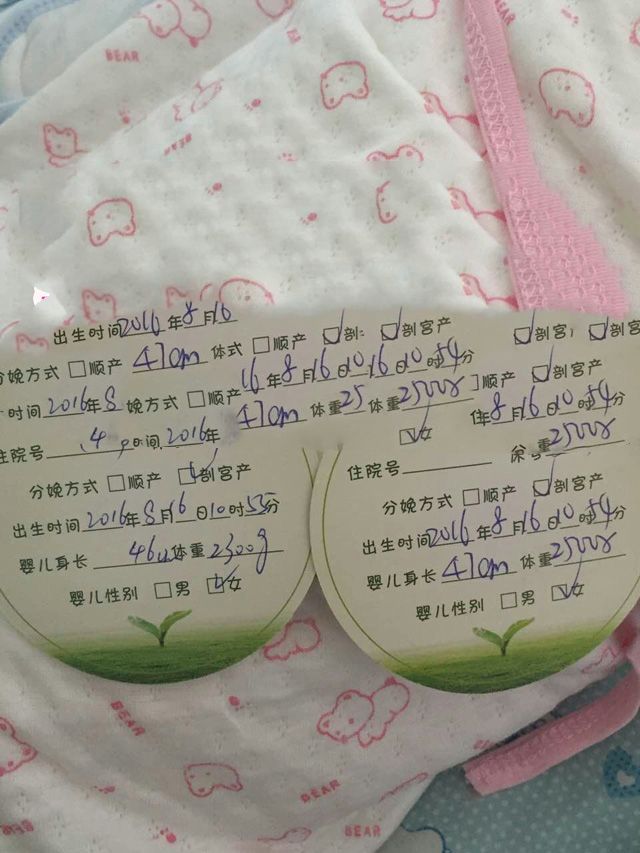 BEAR
BEAR
出生时间2016年8月16
分娩方式□顺产 47cm 体式□顺产 ☑剖 ☑剖宫产 ☑剖宫 ☑剖宫产
时间2016年8 娩方式□顺产16年8月16日10 16日10时54分 顺产 ☑剖宫产
住院号 时间2016年 47cm 体重25 体重2500g 年8月16日10时54分
☑女 重2500g
分娩方式□顺产 ☑剖宫产
出生时间2016年8月16日10时55分
婴儿身长46cm体重2300g
婴儿性别□男 ☑女
住院号
分娩方式□顺产 ☑剖宫产
出生时间2016年8月16日10时54分
婴儿身长47cm体重2500g
婴儿性别□男 ☑女
BEAR
BEAR
BEAR
BEAR